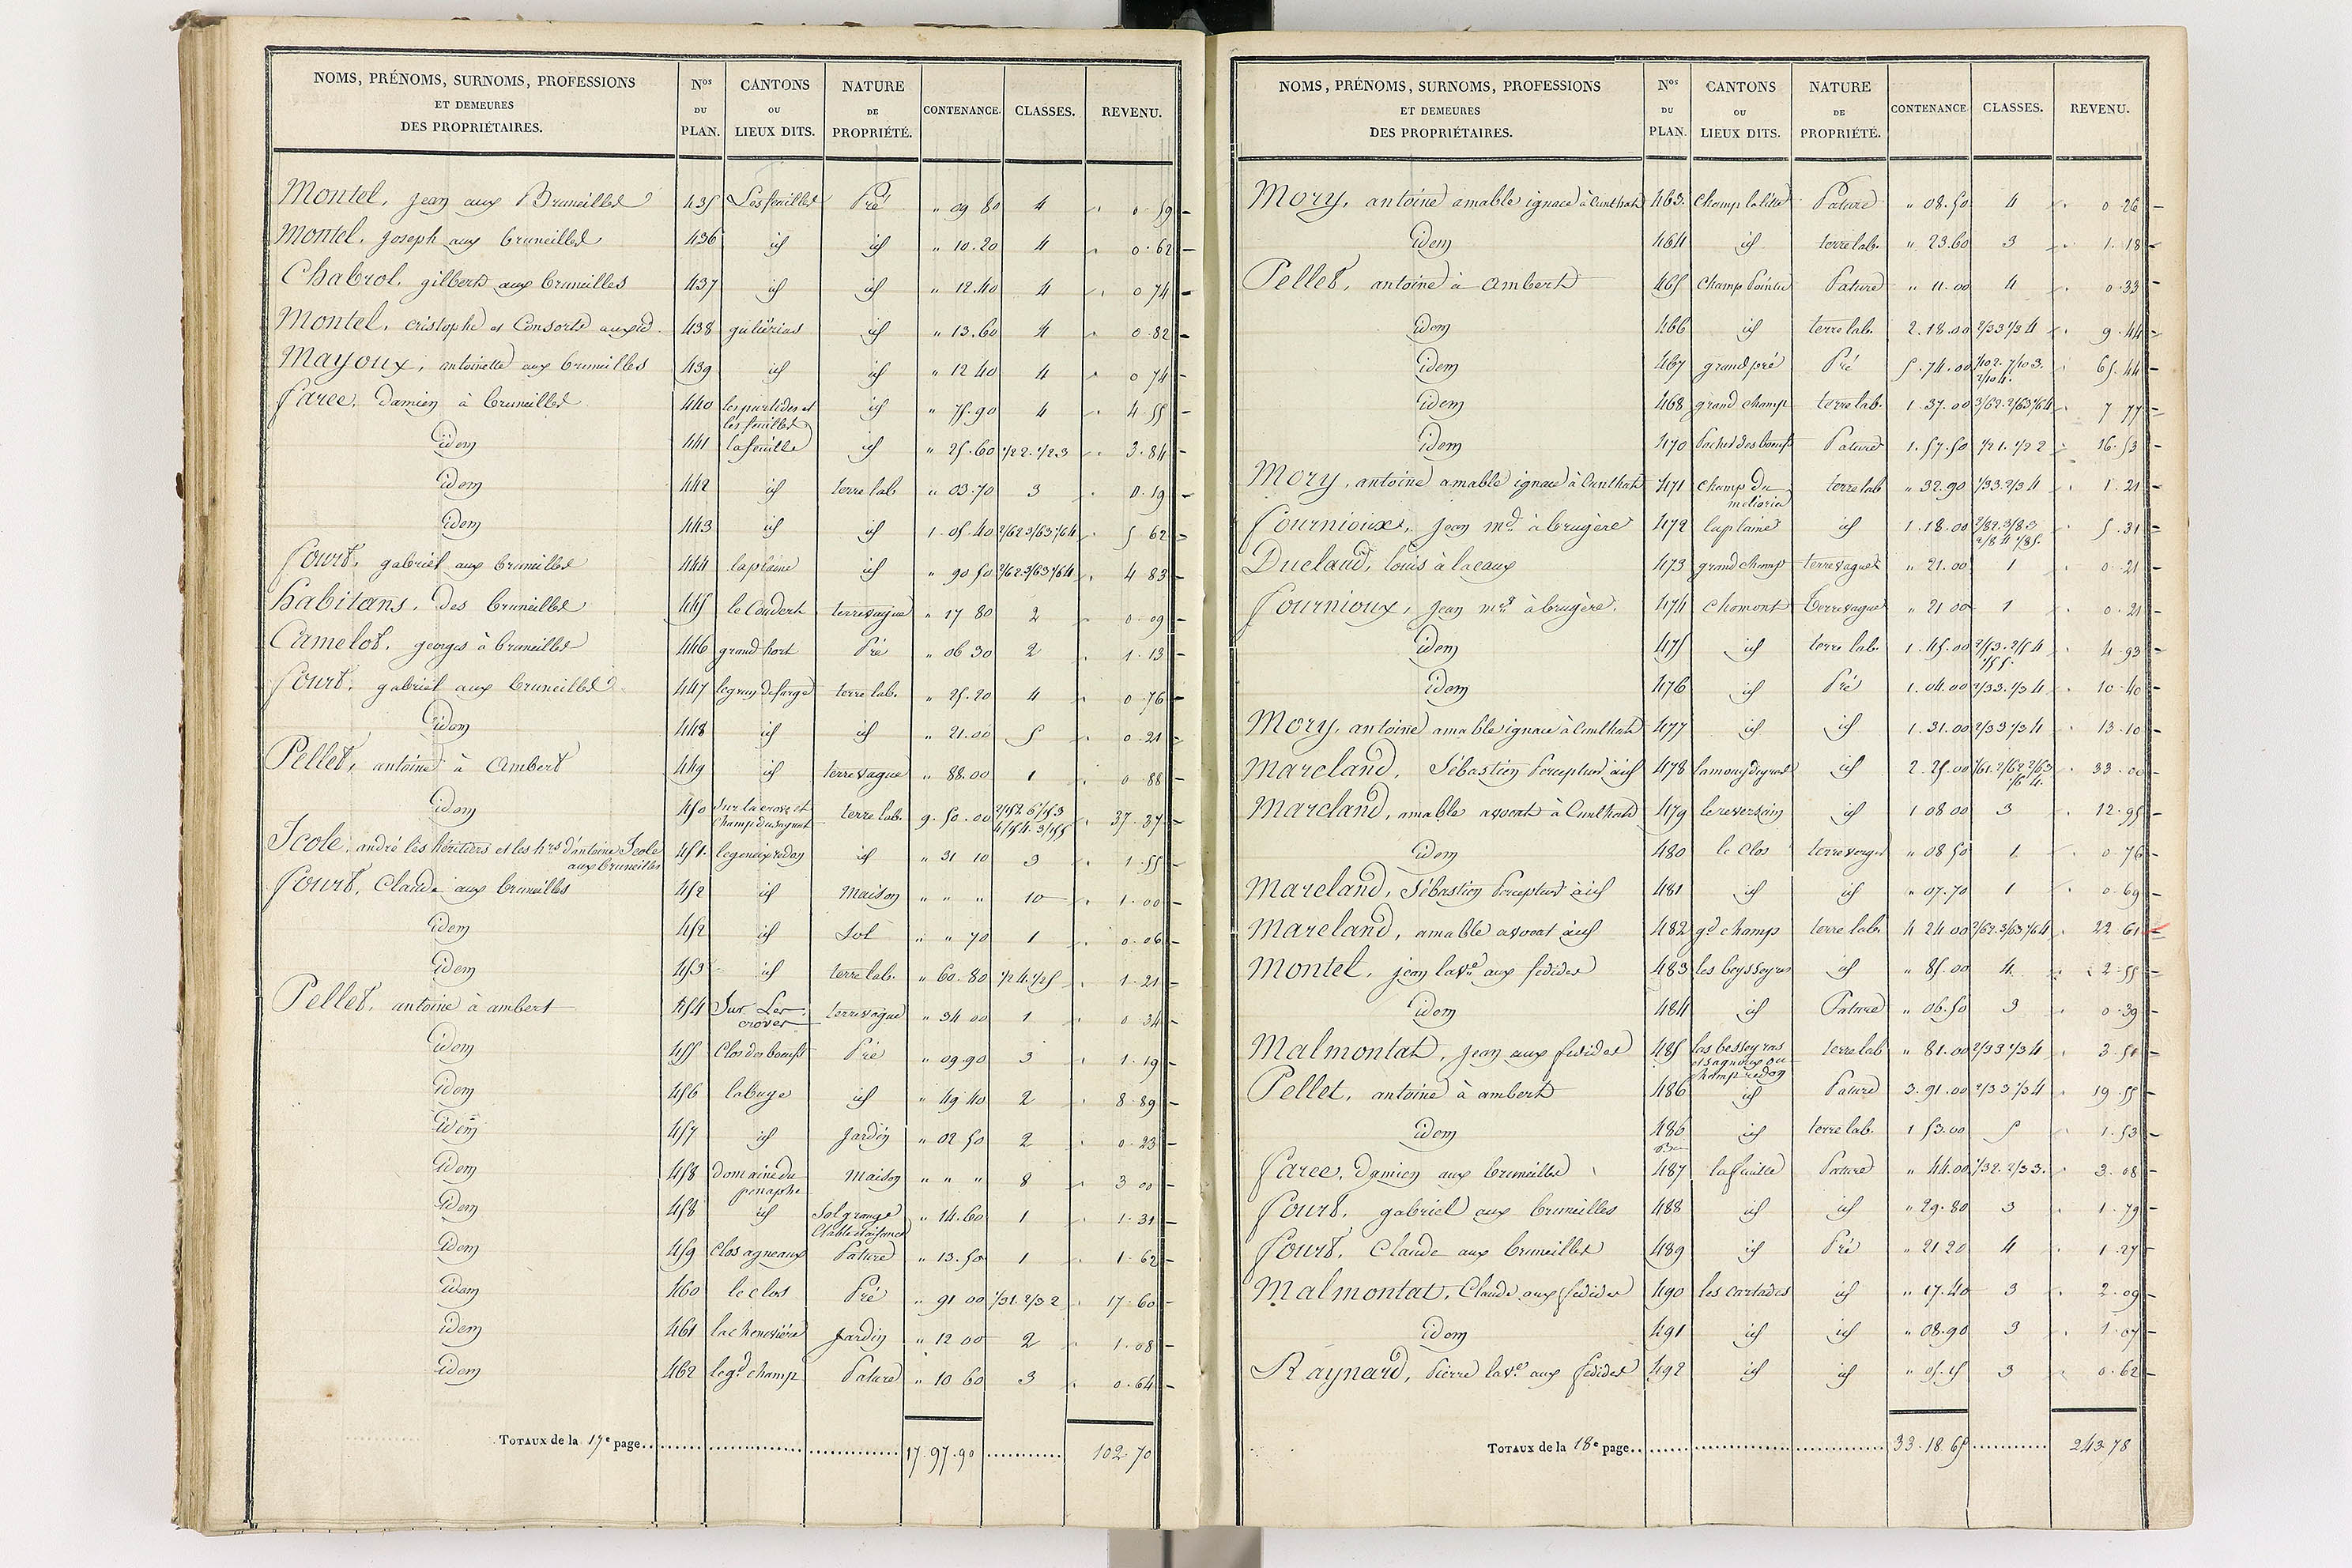 NOMS, PRÉNOMS, SURNOMS, PROFESSIONS ET DEMEURES DES PROPRIÉTAIRES. Nos DU PLAN. CANTONS OU LIEUX DITS. NATURE DE PROPRIÉTÉ. CONTENANCE. CLASSES. REVENU.
Montel, Jean aux Bruneilles 435 Les feuilles Pré " 09 80 4 0 59
Montel, Joseph aux bruneilles 436 id id " 10.20 4 0.62
Chabrol, gilbert aux bruneilles 437 id id " 12.40 4 0 74
Montel, cristophe et Consorts aux id. 438 id " 13.60 4 0.82
Mayoux, antoinette aux bruneilles 439 id id " 12 40 4 0 74
Farce, Damien à bruneilles 440 les partides et les feuilles id " 75.90 4 4.55
idem 441 lafeuille id " 25.60 1/2 2. 1/2 3 3.84
idem 442 id terre lab " 03.70 3 0.19
idem 443 id id 1.05.40 2/6 2 3/6 3 1/6 4 5 62
Fourt, gabriel aux bruneilles 444 laplaine id " 90 50 2/6 2 3/6 3 1/6 4 4 83
habitans, des bruneilles 445 le Coudert terre vague " 17 80 2 0.09
Camelot, georges à bruneilles 446 grand hort Pré " 06 30 2 1.13
Fourt, gabriel aux bruneilles 447 terre lab. " 25.20 4 0.76
idem 448 id id " 21.00 5 0.21
Pellet, antoine à Ambert 449 id terre vague " 88.00 1 0.88
idem 450 Sur la croze et terre lab. 9.50.00 37.37
Icole, andré les héritiers et les hrs d'antoine Icole aux bruneilles 451 id " 31 10 3 1.55
Fourt, Claude aux bruneilles 452 id Maison " " " 10 1.00
idem 452 id Sol " " 70 1 0.06
idem 453 id terre lab. " 60.80 1/2 4. 1/2 5 1.21
Pellet, antoine à ambert 454 terre vague " 34 00 1 0.34
idem 455 Clos des boeufs Pré " 09.90 3 1.19
idem 456 labuge id " 49 40 2 8.89
idem 457 id Jardin " 02 50 2 0.23
idem 458 domaine du Maison " " " 8 3 00
idem 458 id Sol grange " 14.60 1 1.31
idem 459 Clos agneaux Pature " 13.50 1 1.62
idem 460 le clos Pré " 91 00 1/3 1. 2/3 2 17.60
idem 461 lachenevière Jardin " 12 00 2 1.08
idem 462 legd champ Pature " 10 60 3 0.64
TOTAUX de la 17e page 17.97.90 102.70
NOMS, PRÉNOMS, SURNOMS, PROFESSIONS ET DEMEURES DES PROPRIÉTAIRES. Nos DU PLAN. CANTONS OU LIEUX DITS. NATURE DE PROPRIÉTÉ. CONTENANCE CLASSES. REVENU.
Mory, antoine amable ignace à Cunlhat 463 Pature " 08.50 4 0.26
idem 464 id terre lab. " 23.60 3 1.18
Pellet, antoine à Ambert 465 Champ Pointu Pature " 11.00 4 0.33
idem 466 id terre lab. 2.18.00 2/3 3 1/3 4 9.44
idem 467 grand pré Pré 5.74.00 1/10 2. 7/10 3. 2/10 4. 65.44
idem 468 grand champ terre lab. 1.37.00 3/6 2. 2/6 3 1/6 4 7 77
idem 470 Pature 1.57.50 1/2 1. 1/2 2 16.53
Mory, antoine amable ignace à Cunlhat 471 champ du terre lab " 32.90 1/3 3. 2/3 4 1.21
Fournioux, Jean md à brugère 472 laplaine id 1.18.00 2/8 2. 3/8 3 2/8 4 1/8 5. 5.31
Duclaud, louis à lacaux 473 grand champ terre vague " 21.00 1 0.21
Fournioux, Jean md à brugère. 474 Chomont Terre vague " 21 00 1 0.21
idem 475 id terre lab. 1.45.00 2/5 3. 2/5 4 1/5 5. 4.93
idem 476 id Pré 1.04.00 2/3 3. 1/3 4 10.40
Mory, antoine amable ignace à Cunlhat 477 id id 1.31.00 2/3 3 1/3 4 13.10
Marcland, Sébastien Percepteur à id 478 id 2.25.00 1/6 1. 2/6 2 2/6 3 1/6 4. 33.00
Marcland, amable avocat à Cunlhat 479 lereversain id 1 08 00 3 12.95
idem 480 le Clos terre verger " 08 50 1 0.76
Marcland, Sébastien Percepteur à id 481 id id " 07.70 1 0.69
Marcland, amable avocat à id 482 gd champ terre lab. 4 24 00 2/6 2. 3/6 3 1/6 4 22 61
Montel, jean aux fedides 483 les beysseyres id " 85.00 4 2.55
idem 484 id Pature " 06.50 3 0.39
Malmontat, Jean aux fedides 485 terre lab " 81.00 2/3 3 1/3 4 3.51
Pellet, antoine à ambert 486 id Pature 3.91.00 2/3 3 1/3 4 19.55
idem 486 bis id terre lab. 1 53.00 5 1.53
Farce, Damien aux bruneilles 487 lafeuille Pature " 44.00 1/3 2. 2/3 3. 3.08
Fourt, gabriel aux bruneilles 488 id id " 29.80 3 1.79
Fourt, Claude aux bruneilles 489 id Pré " 21 20 4 1.27
Malmontat, Claude aux fedides 490 les cartades id " 17.40 3 2.09
idem 491 id id " 08.90 3 1.07
Raynard, Pierre aux fedides 492 id id " 05.15 3 0.62
TOTAUX de la 18e page 33.18.65 243.78